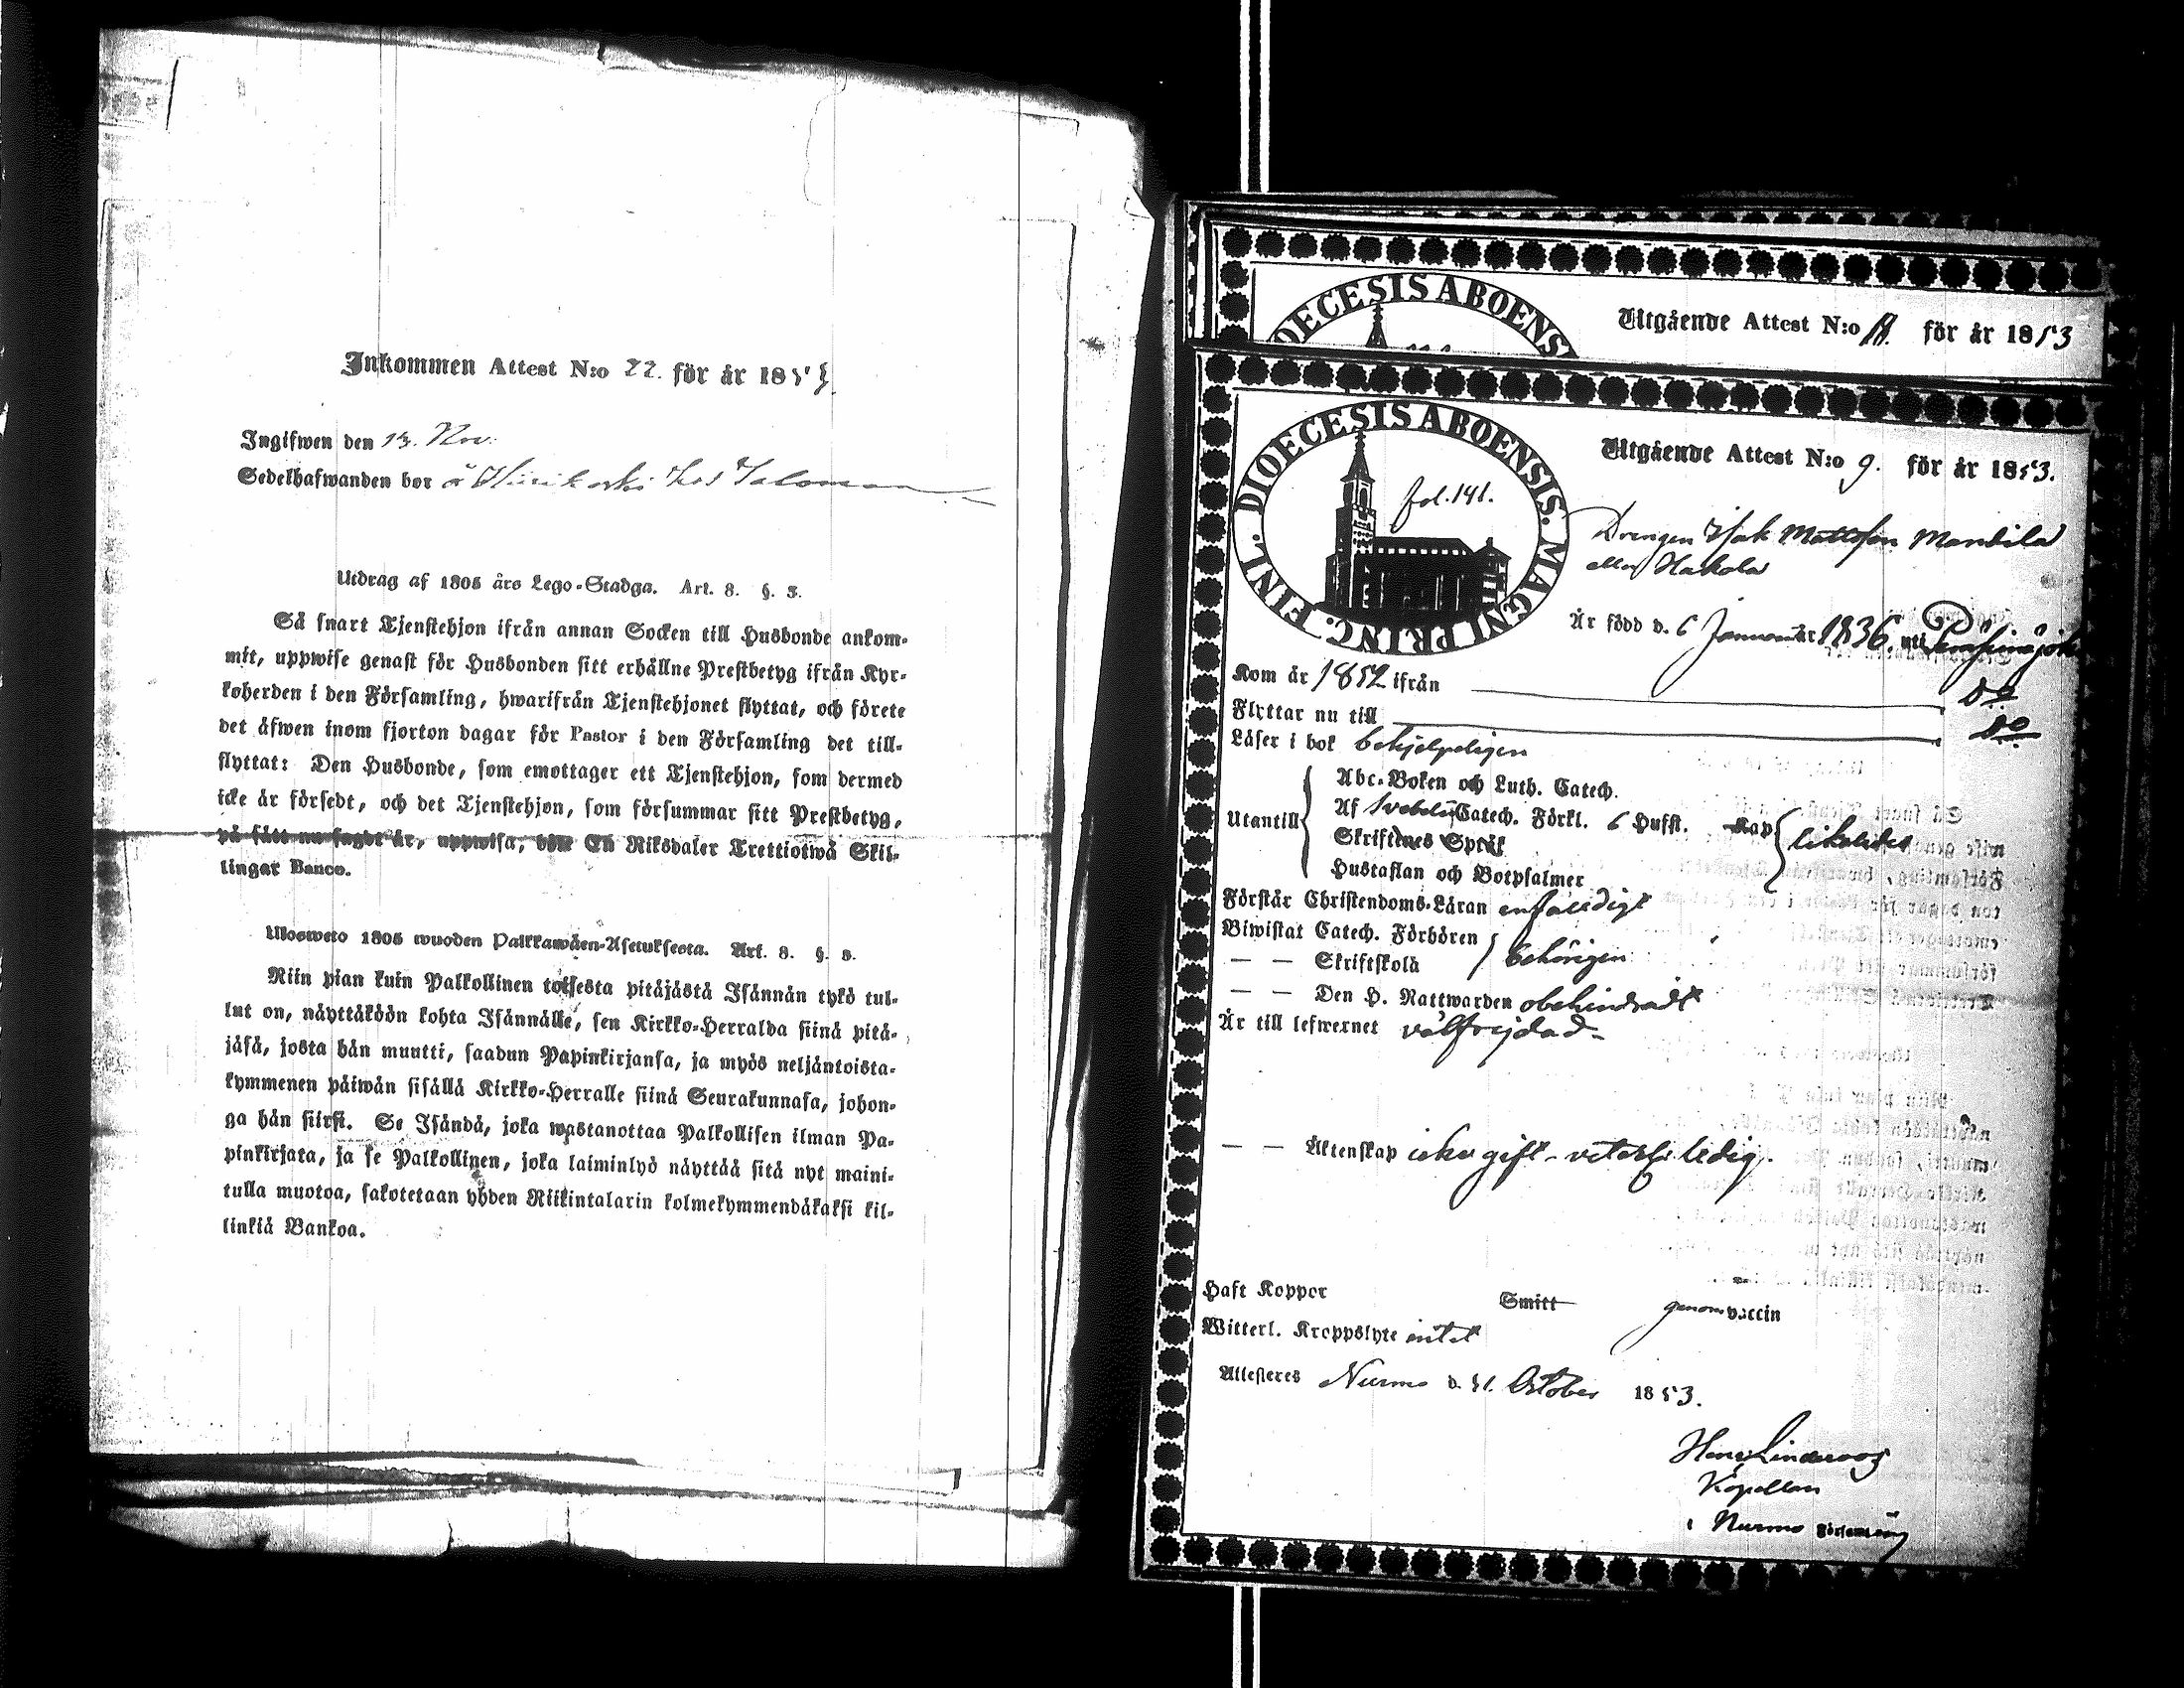 Inkommen Attest N:o 22. för år 1853.
Ingifwen den 13. Nov.
Sedelhafwanden bor å Hiirikoski hos Salomon
Utdrag af 1805 års Lego-Stadga. Art. 8. §. 3.
Så snart Tjenstehjon ifrån annan Socken till Husbonde ankom-
mit, uppwise genast för Husbonden sitt erhållne Prestbetyg ifrån Kyr-
koherden i den Församling, hwarifrån Tjenstehjonet flyttat, och förete
det åfwen inom fjorton dagar för Pastor i den Församling det till-
flyttat: Den Husbonde, som emottager ett Tjenstehjon, som dermed
icke är försedt, och det Tjenstehjon, som försummar sitt Prestbetyg,
på sått nu sagdt är, uppwisa, böte En Riksdaler Trettiotwå Skil-
lingar Banco.
Ulosweto 1805 wuoden Palkkawäen-Asetuksesta. Art. 8. §. 3.
Niin pian kuin Palkollinen toisesta pitäjästä Isännän tykö tul-
lut on, näyttäköön kohta Isännälle, sen Kirkko-Herralda siinä pitä-
jäsä, josta hän muutti, saadun Papinkirjansa, ja myös neljäntoista-
kymmenen päiwän sisällä Kirkko-Herralle siinä Seurakunnasa, johon-
ga hän siirsi. Se Isändä, joka wastanottaa Palkollisen ilman Pa-
pinkirjata, ja se Palkollinen, joka laiminlyö näyttää sitä nyt maini-
tulla muotoa, sakotetaan yhden Riikintalarin kolmekymmendäkaksi kil-
linkiä Bankoa.
DIOECESIS ABOENSIS
Utgående Attest N:o för år 1853
DIOECESIS ABOENSIS. MAGNI PRINC. FINL.
fol. 141.
Utgående Attest N:o 9. för år 1853.
Drengen Isak Mattsson Mandila
eller Hakola
Är född d. 6 Januari år 1836. uti
Kom år 1852 ifrån Do
Flyttar nu till Do
Läser i bok behjelpeligen
Utantill
Abc-Boken och Luth. Catech.
Af Svebelii Catech. Förkl. 6 Hufst. Kap
Skriftenes Språk
Hustaflan och Botpsalmer
likaledes
Förstår Christendoms-Läran enfaldigt
Biwistat Catech. Förhören
— — Skriftskola
behörigen
— — Den H. Nattwarden obehindradt
Är till lefwernet välfrejdad
— — Äktenskap icke gift - veterl. ledig.
Haft Koppor Smitt genom vaccin
Witterl. Kroppslyte intet
Attesteras Nurmo d. 31. October 1853.
Henr. Linderoos
Kapellan
i Nurmo Församling